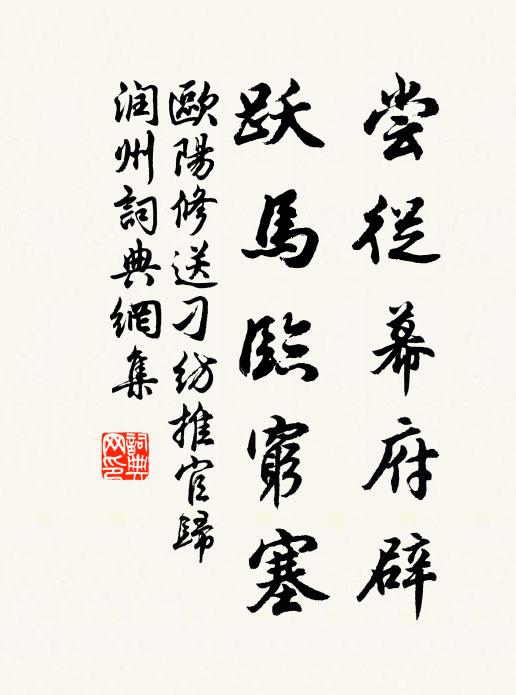 尝從幕府辟
跃馬臨窮塞
歐陽修送刁紡推官歸
润州詞典網集
詞典网印